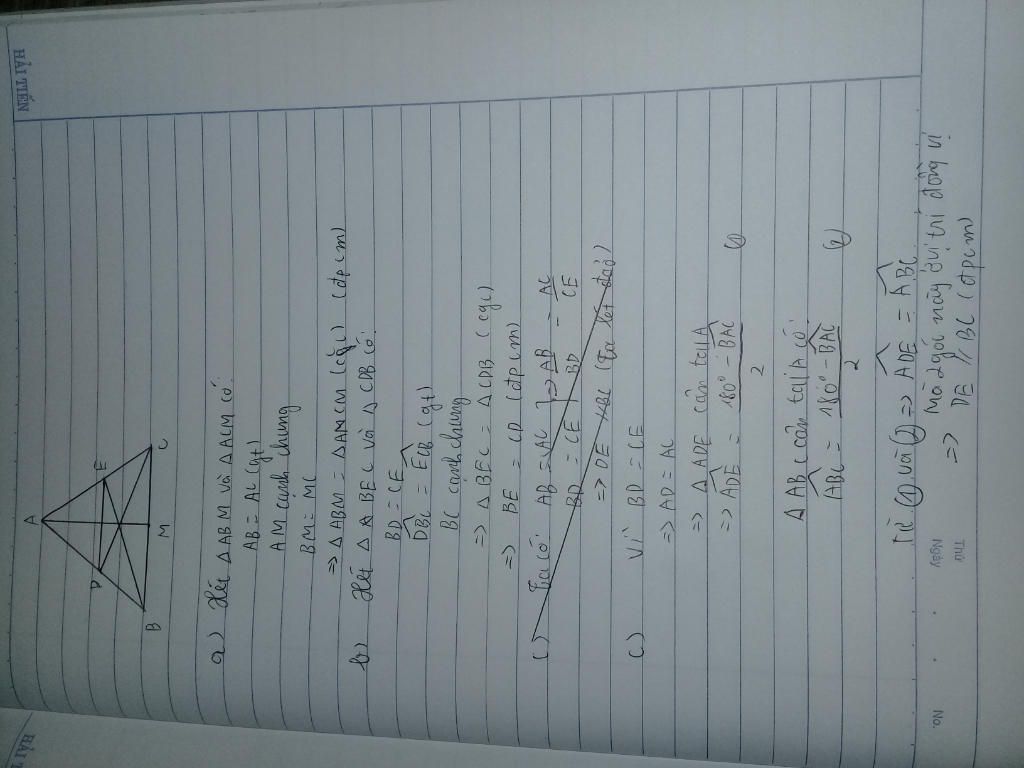 HẢI TIẾN
Thứ
Ngày
No.
HẢI T
A
D
E
B
M
C
a) Xét Δ ABM và Δ ACM có:
AB = AC (gt)
AM cạnh chung
BM = MC
=> Δ ABM = Δ AMCM (cgc) (đpcm)
b) Xét Δ BEC và Δ CDB có:
BD = CE
DBC = ECB (gt)
BC cạnh chung
=> Δ BEC = Δ CDB (cgc)
=> BE = CD (đpcm)
c) Ta có: AB = AC } => AB/BD = AC/CE
BD = CE
=> DE // BC (Ta lét đảo)
c) Vì BD = CE
=> AD = AC
=> Δ ADE cân tại A
=> ADE = 180° - BAC / 2 (1)
Δ ABC cân tại A có:
ABC = 180° - BAC / 2 (2)
Từ (1) và (2) => ADE = ABC
Mà 2 góc này ở vị trí đồng vị
=> DE // BC (đpcm)